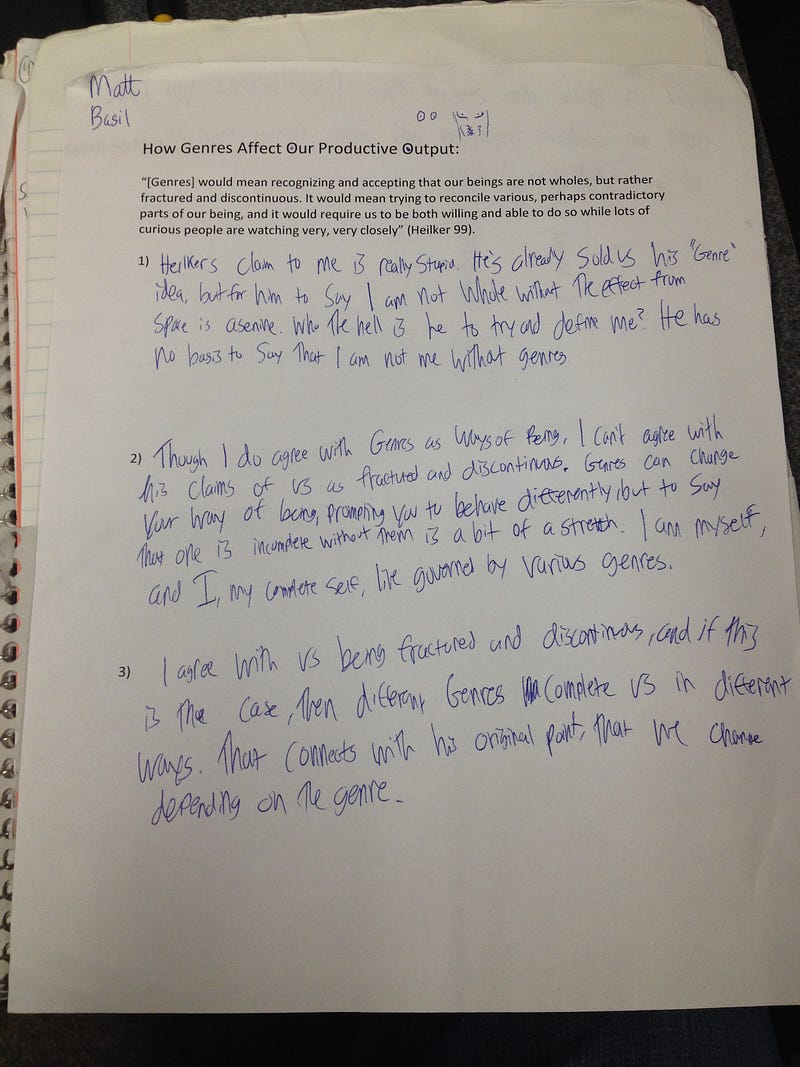 Matt
Basil
How Genres Affect Our Productive Output:
“[Genres] would mean recognizing and accepting that our beings are not wholes, but rather
fractured and discontinuous. It would mean trying to reconcile various, perhaps contradictory
parts of our being, and it would require us to be both willing and able to do so while lots of
curious people are watching very, very closely” (Heilker 99).
1) Heilkers claim to me is really stupid. He's already sold us his "Genre"
idea, but for him to say I am not whole without the effect from
space is asenine. Who the hell is he to try and define me? He has
no basis to say that I am not me without genres.
2) Though I do agree with Genres as ways of Being, I can't agree with
his claims of us as fractured and discontinuous. Genres can change
your way of being, prompting you to behave differently, but to say
that one is incomplete without them is a bit of a stretch. I am myself,
and I, my complete self, live governed by various genres.
3) I agree with us being fractured and discontinuous, and if this
is the case, then different Genres complete us in different
ways. That connects with his original point, that we change
depending on the genre.